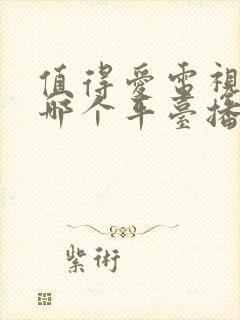 值得愛電視
哪个车臺播
紫術